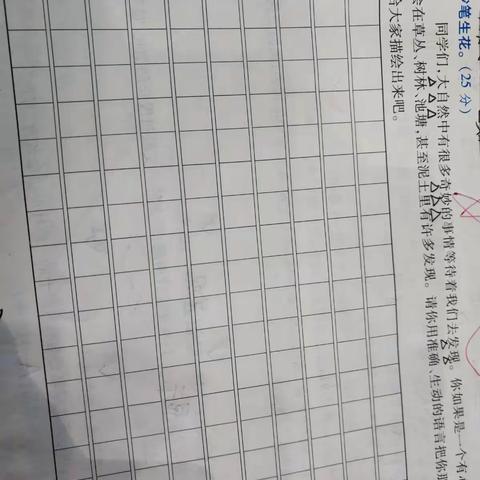 笔生花。(25分)
同学们,大自然中有很多奇妙的事情等待着我们去发现。你如果是一个有
会在草丛、树林、池塘,甚至泥土里有许多发现。请你用准确、生动的语言把你
给大家描绘出来吧。